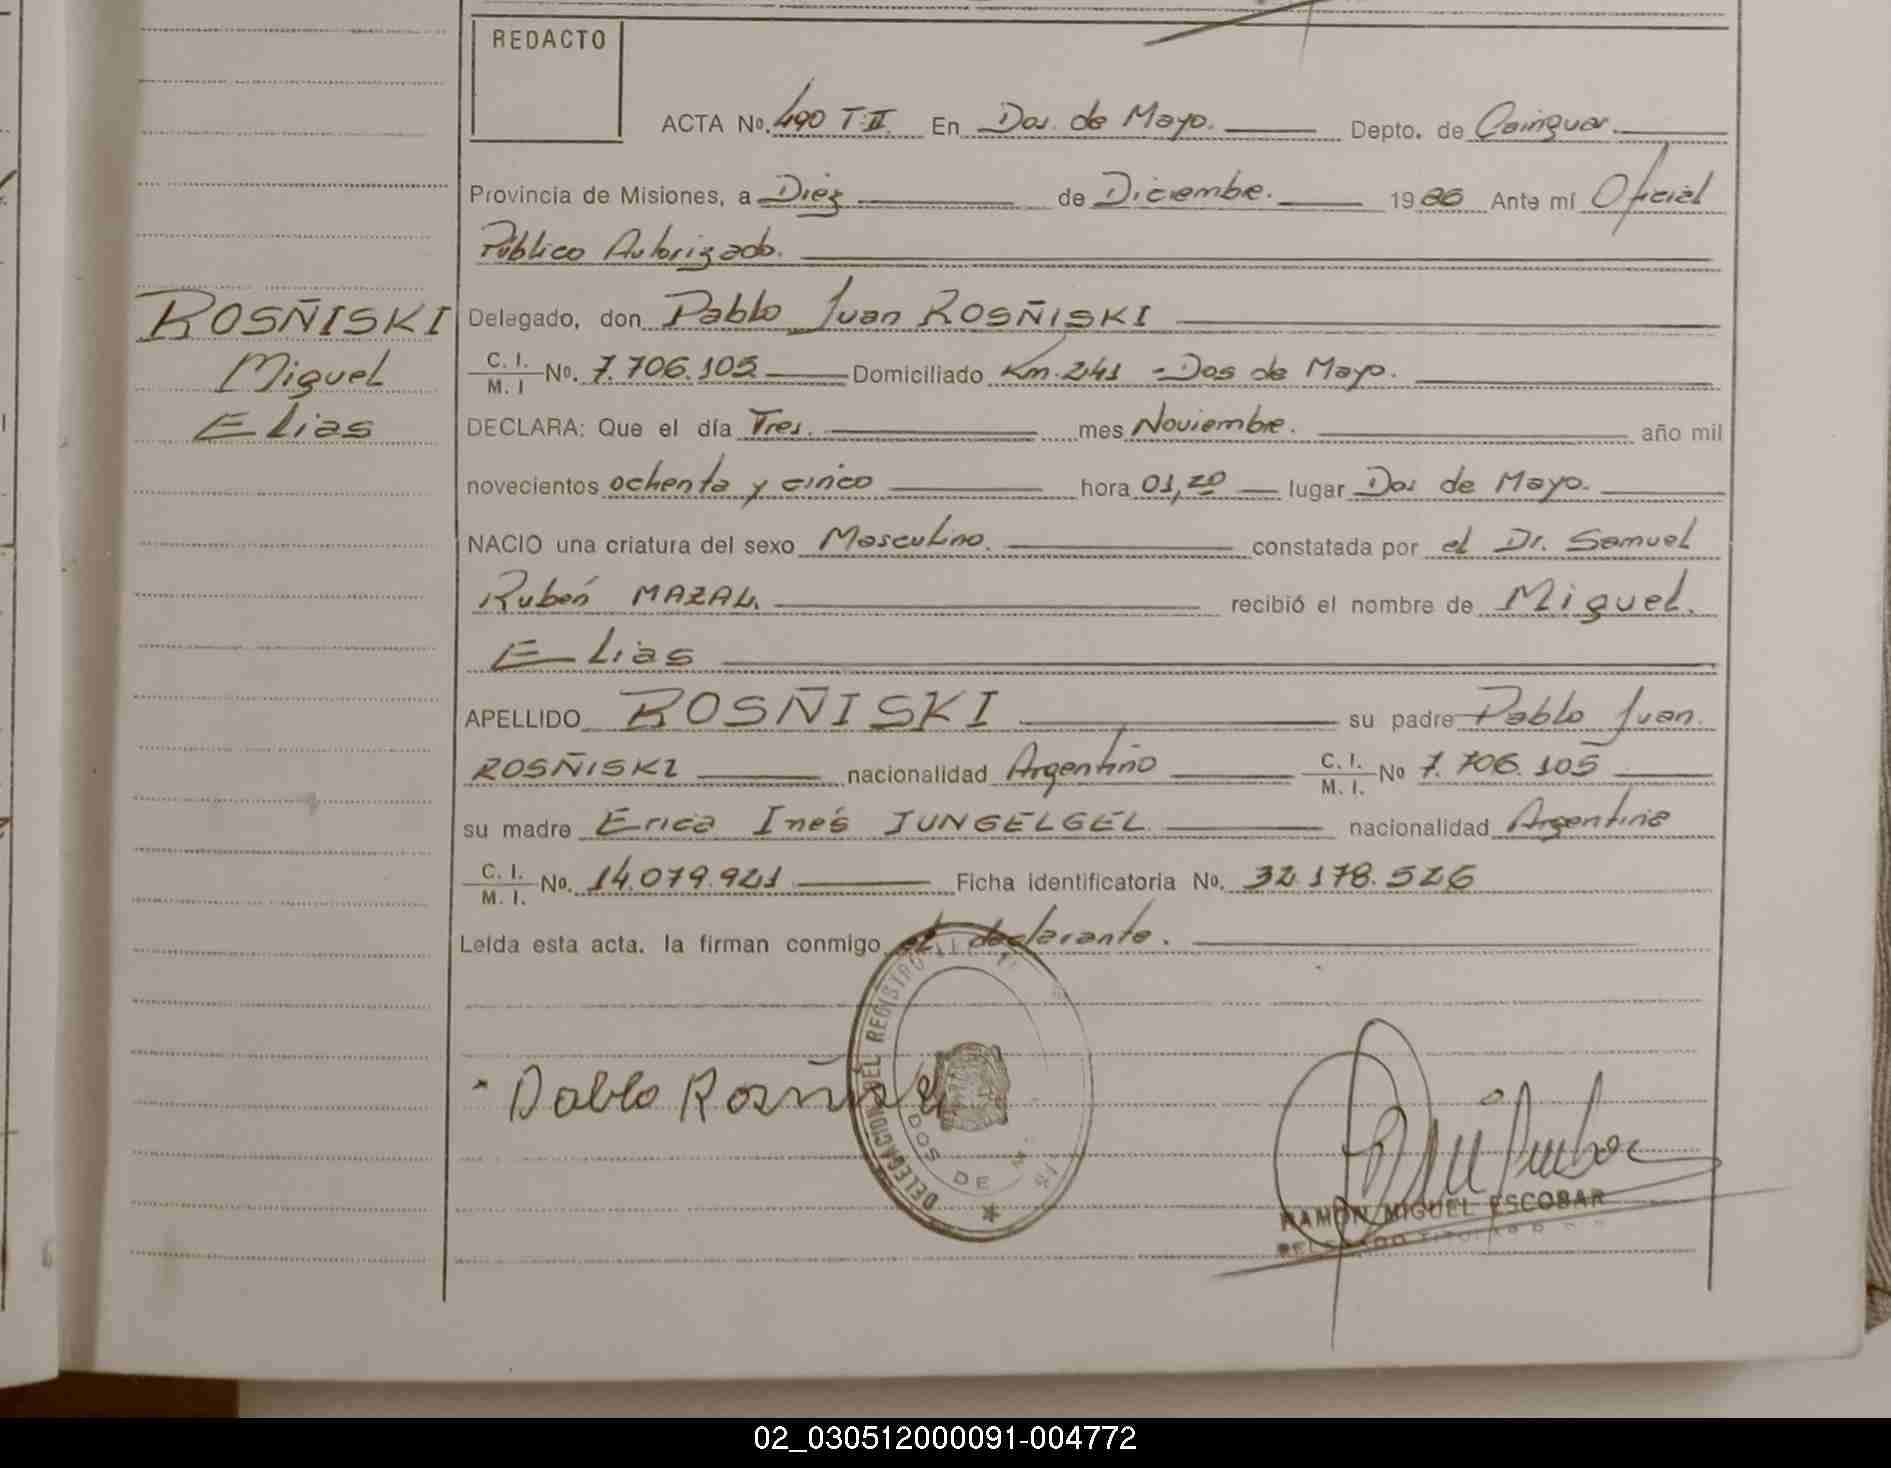 REDACTO
ACTA No. 490 T-II. En Dos de Mayo. Depto. de Cainguas.
Provincia de Misiones, a Diez de Diciembre. 1986 Ante mí Oficial
Público Autorizado.
ROSÑISKI
Miguel
Elias
Delegado, don Pablo Juan ROSÑISKI
C. I. / M. I No. 7.706.105 Domiciliado Km. 241 - Dos de Mayo.
DECLARA: Que el día Tres. mes Noviembre. año mil
novecientos ochenta y cinco hora 01,20 lugar Dos de Mayo.
NACIO una criatura del sexo Masculino. constatada por el Dr. Samuel
Rubén MAZAL. recibió el nombre de Miguel.
Elias
APELLIDO ROSÑISKI su padre Pablo Juan.
ROSÑISKI nacionalidad Argentino C. I. / M. I. No 7.706.105
su madre Erica Inés JUNGELGEL nacionalidad Argentina
C. I. / M. I. No. 14.079.921 Ficha identificatoria No. 32.178.526
Leída esta acta. la firman conmigo el declarante.
DELEGACION DEL REGISTRO
DOS DE
Pablo Rosñiski
RAMON MIGUEL ESCOBAR
DELEGADO TITULAR
02_030512000091-004772